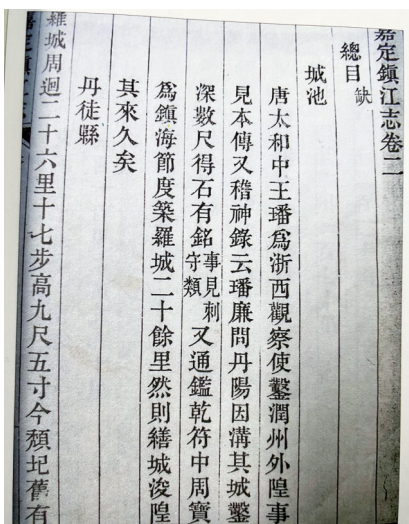 嘉定鎮江志卷二
總目缺
城池
唐太和中王璠爲浙西觀察使鑿潤州外隍事
見本傳又稽神錄云璠廉問丹陽因溝其城鑿
深數尺得石有銘事見刺守類又通鑑乾符中周寶
爲鎮海節度築羅城二十餘里然則繕城浚隍
其來久矣
丹徒縣
羅城周迴二十六里十七步高九尺五寸今頹圯舊有